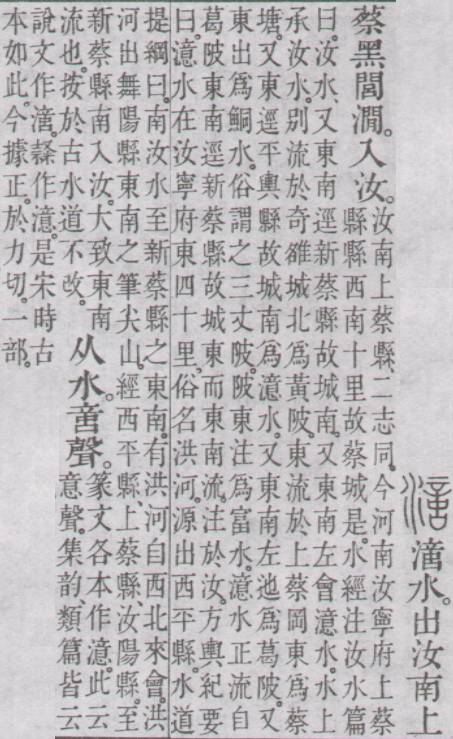 㵄水。出汝南上
蔡黑閭澗。入汝。
汝南上蔡縣、二志同。今河南汝寧府上蔡
縣縣西南十里故蔡城是。水經注汝水篇
曰。汝水又東南逕新蔡縣故城南。又東南左會澺水。水上
承汝水。別流於奇雒城北爲黃陂。東流於上蔡岡東爲蔡
塘。又東逕平輿縣故城南爲澺水。又東南左迆爲葛陂。又
東出爲鮦水。俗謂之三丈陂。陂東注爲富水。澺水正流自
葛陂東南逕新蔡縣故城東。而東南流注於汝。方輿紀要
曰。澺水在汝寧府東四十里。俗名洪河。源出西平縣。水道
提綱曰。南汝水至新蔡縣之東南。有洪河自西北來會。洪
河出舞陽縣東南之筆尖山。經西平縣、上蔡縣、汝陽縣、至
新蔡縣南入汝。大致東南
流也。按於古水道不改。
从水。𠶷聲。
篆文各本作澺。此云
意聲。集韵類篇皆云
說文作㵄。隷作澺。是宋時古
本如此。今據正。於力切。一部。